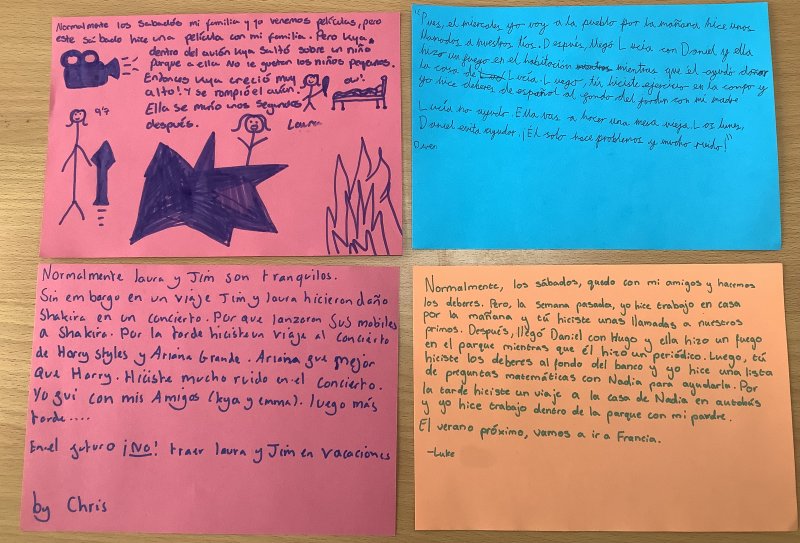 Normalmente los sabados mi familia y yo venemos películas, pero
este sábado hice una película con mi familia. Pero Kya,
dentro del avión Kya saltó sobre un niño
porque a ella. No le gustan los niños pequeños.
Entonces Kya creció muy
alto! Y se rompió el avión.
Ella se murío unos segundos
después.
ow!
Laura
9'7
"Pues, el miércoles yo voy a la pueblo por la mañana, hice unos
llamados a nuestros tíos. Después, llegó Lucía con Daniel y ella
hizo un fuego en el habitación mientras que él ayudó
la casa de Lucía. Luego, tú hiciste ejercicio en la campo y
yo hice deberes de español al fondo del jardín con mi madre
Lucía no ayudo. Ella vas a hacer una mesa vieja. Los lunes,
Daniel evita ayudar. ¡Él solo hace problemas y mucho ruido!"
Normalmente laura y Jim son tranquilos.
Sin embargo en un viaje Jim y laura hicieron daño
Shakira en un concierto. Por que lanzaron sus mobiles
a Shakira. Por la tarde hicisteun viaje al concierto
de Harry styles y Ariana Grande. Ariana gue mejor
que Harry. Hiciste mucho ruido en el concierto.
Yo gui con mis Amigos (kya y emma). luego más
tarde....
En el guturo ¡NO! traer laura y Jim en vacaciones
by Chris
Normalmente, los sábados, quedo con mi amigos y hacemos
los deberes. Pero, la semana pasada, yo hice trabajo en casa
por la mañana y tú hiciste unas llamadas a nuestros
primos. Después, llegó Daniel con Hugo y ella hizo un fuego
en el parque mientras que él hizo un periódico. Luego, tú
hiciste los deberes al fondo del banco y yo hice una lista
de preguntas matemáticas con Nadia para ayudarla. Por
la tarde hiciste un viaje a la casa de Nadia en autobús
y yo hice trabajo dentro de la parque con mi pardre.
El verano próximo, vamos a ir a Francia.
-Luke